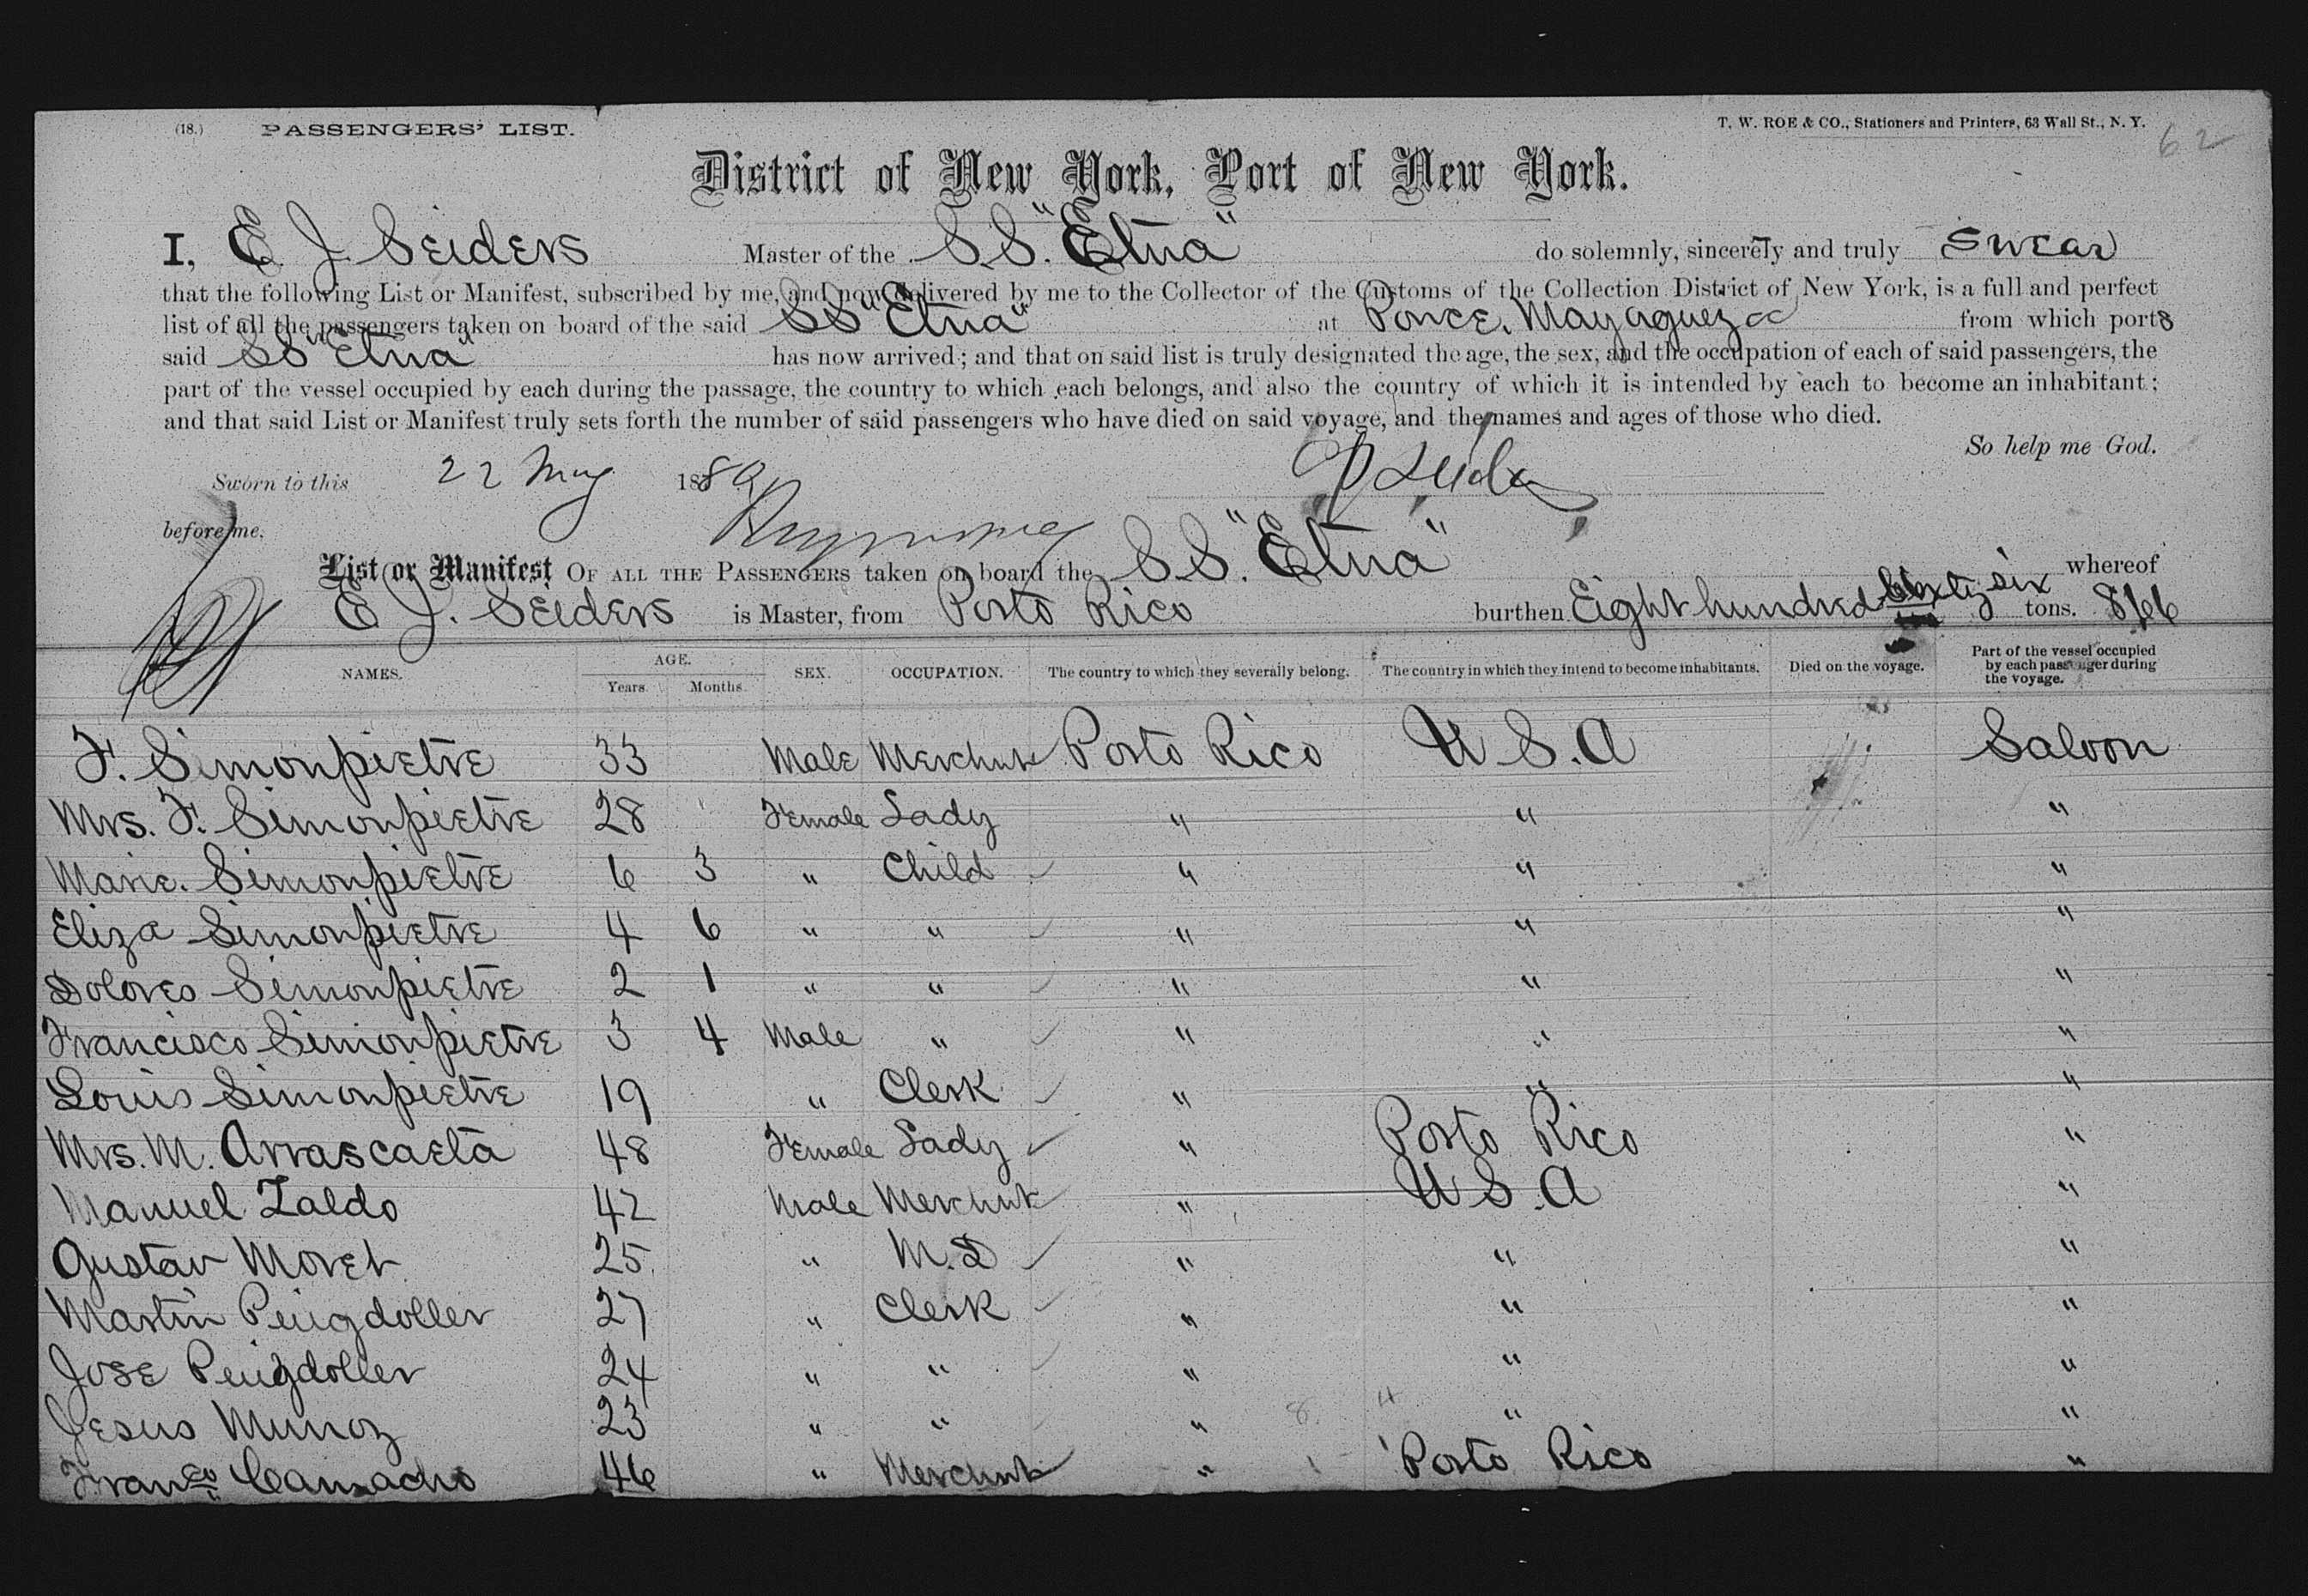 (18.) PASSENGERS' LIST. T. W. ROE & CO., Stationers and Printers, 63 Wall St., N. Y. 62
District of New York, Port of New York.
I, E. J. Seiders Master of the S.S. "Etna" do solemnly, sincerely and truly swear
that the following List or Manifest, subscribed by me, and now delivered by me to the Collector of the Customs of the Collection District of New York, is a full and perfect
list of all the passengers taken on board of the said SS "Etna" at Ponce, Mayaguez &c from which ports
said SS "Etna" has now arrived; and that on said list is truly designated the age, the sex, and the occupation of each of said passengers, the
part of the vessel occupied by each during the passage, the country to which each belongs, and also the country of which it is intended by each to become an inhabitant;
and that said List or Manifest truly sets forth the number of said passengers who have died on said voyage, and the names and ages of those who died.
So help me God.
Sworn to this 22 May 1889
before me.
List or Manifest OF ALL THE PASSENGERS taken on board the S.S. "Etna" whereof
E. J. Seiders is Master, from Porto Rico burthen Eight hundred sixty six tons. 866
NAMES. AGE. Years. Months. SEX. OCCUPATION. The country to which they severally belong. The country in which they intend to become inhabitants. Died on the voyage. Part of the vessel occupied by each passenger during the voyage.
F. Simonpietre 33 Male Merchnt Porto Rico U.S.A Saloon
Mrs. F. Simonpietre 28 Female Lady " " "
Marie. Simonpietre 6 3 " Child " " "
Eliza Simonpietre 4 6 " " " " "
Dolores Simonpietre 2 1 " " " " "
Francisco Simonpietre 3 4 Male " " " "
Louis Simonpietre 19 " Clerk " " "
Mrs. M. Arrascaeta 48 Female Lady " Porto Rico "
Manuel Zaldo 42 Male Merchnt " U.S.A "
Gustav Moret 25 " M.D " " "
Martin Peiigdoller 27 " Clerk " " "
Jose Peiigdoller 24 " " " " "
Jesus Munoz 23 " " " " "
Franco Camacho 46 " Merchnt " Porto Rico "